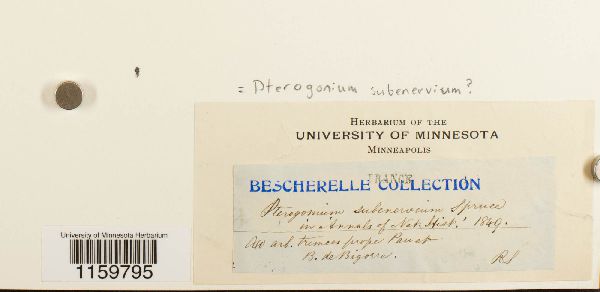 = Pterogonium subenervium?
HERBARIUM OF THE
UNIVERSITY OF MINNESOTA
MINNEAPOLIS
FRANCE
BESCHERELLE COLLECTION
Pterogonium subenervium Spruce
in Annals of Nat. Hist. 1849.
Ad arb. truncos prope
B. de Bigorre. RS
University of Minnesota Herbarium
1159795